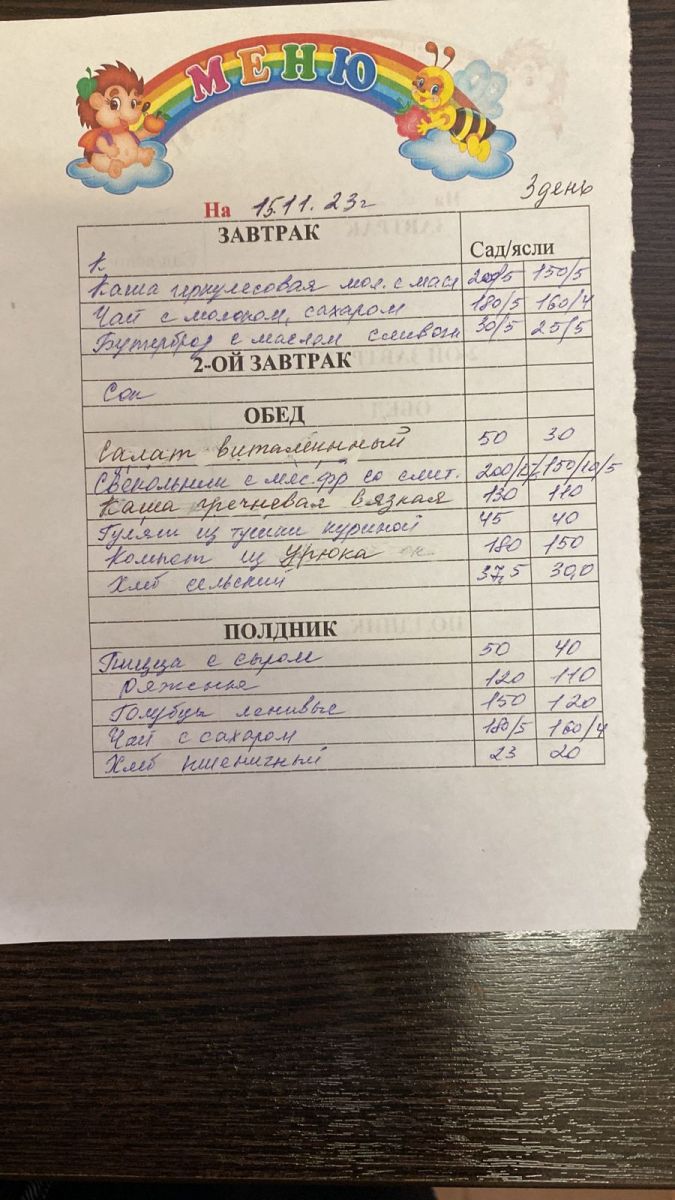 МЕНЮ
На 15.11.23г 3 день
ЗАВТРАК Сад/ясли
К
Каша геркулесовая мол. с масл 200/5 150/5
Чай с молоком, сахаром 180/5 160/4
Бутерброд с маслом сливочн 30/5 25/5
2-ОЙ ЗАВТРАК
Сок
ОБЕД
Салат витаминный 50 30
Свекольник с мяс.фр со смет. 150/10/5
Каша гречневая вязкая 130 110
Гуляш из тушки куриной 45 40
Компот из урюка 180 150
Хлеб сельский 37,5 30,0
ПОЛДНИК
Пицца с сыром 50 40
Ряженка 120 110
Голубцы ленивые 150 120
Чай с сахаром 180/5 160/4
Хлеб пшеничный 23 20